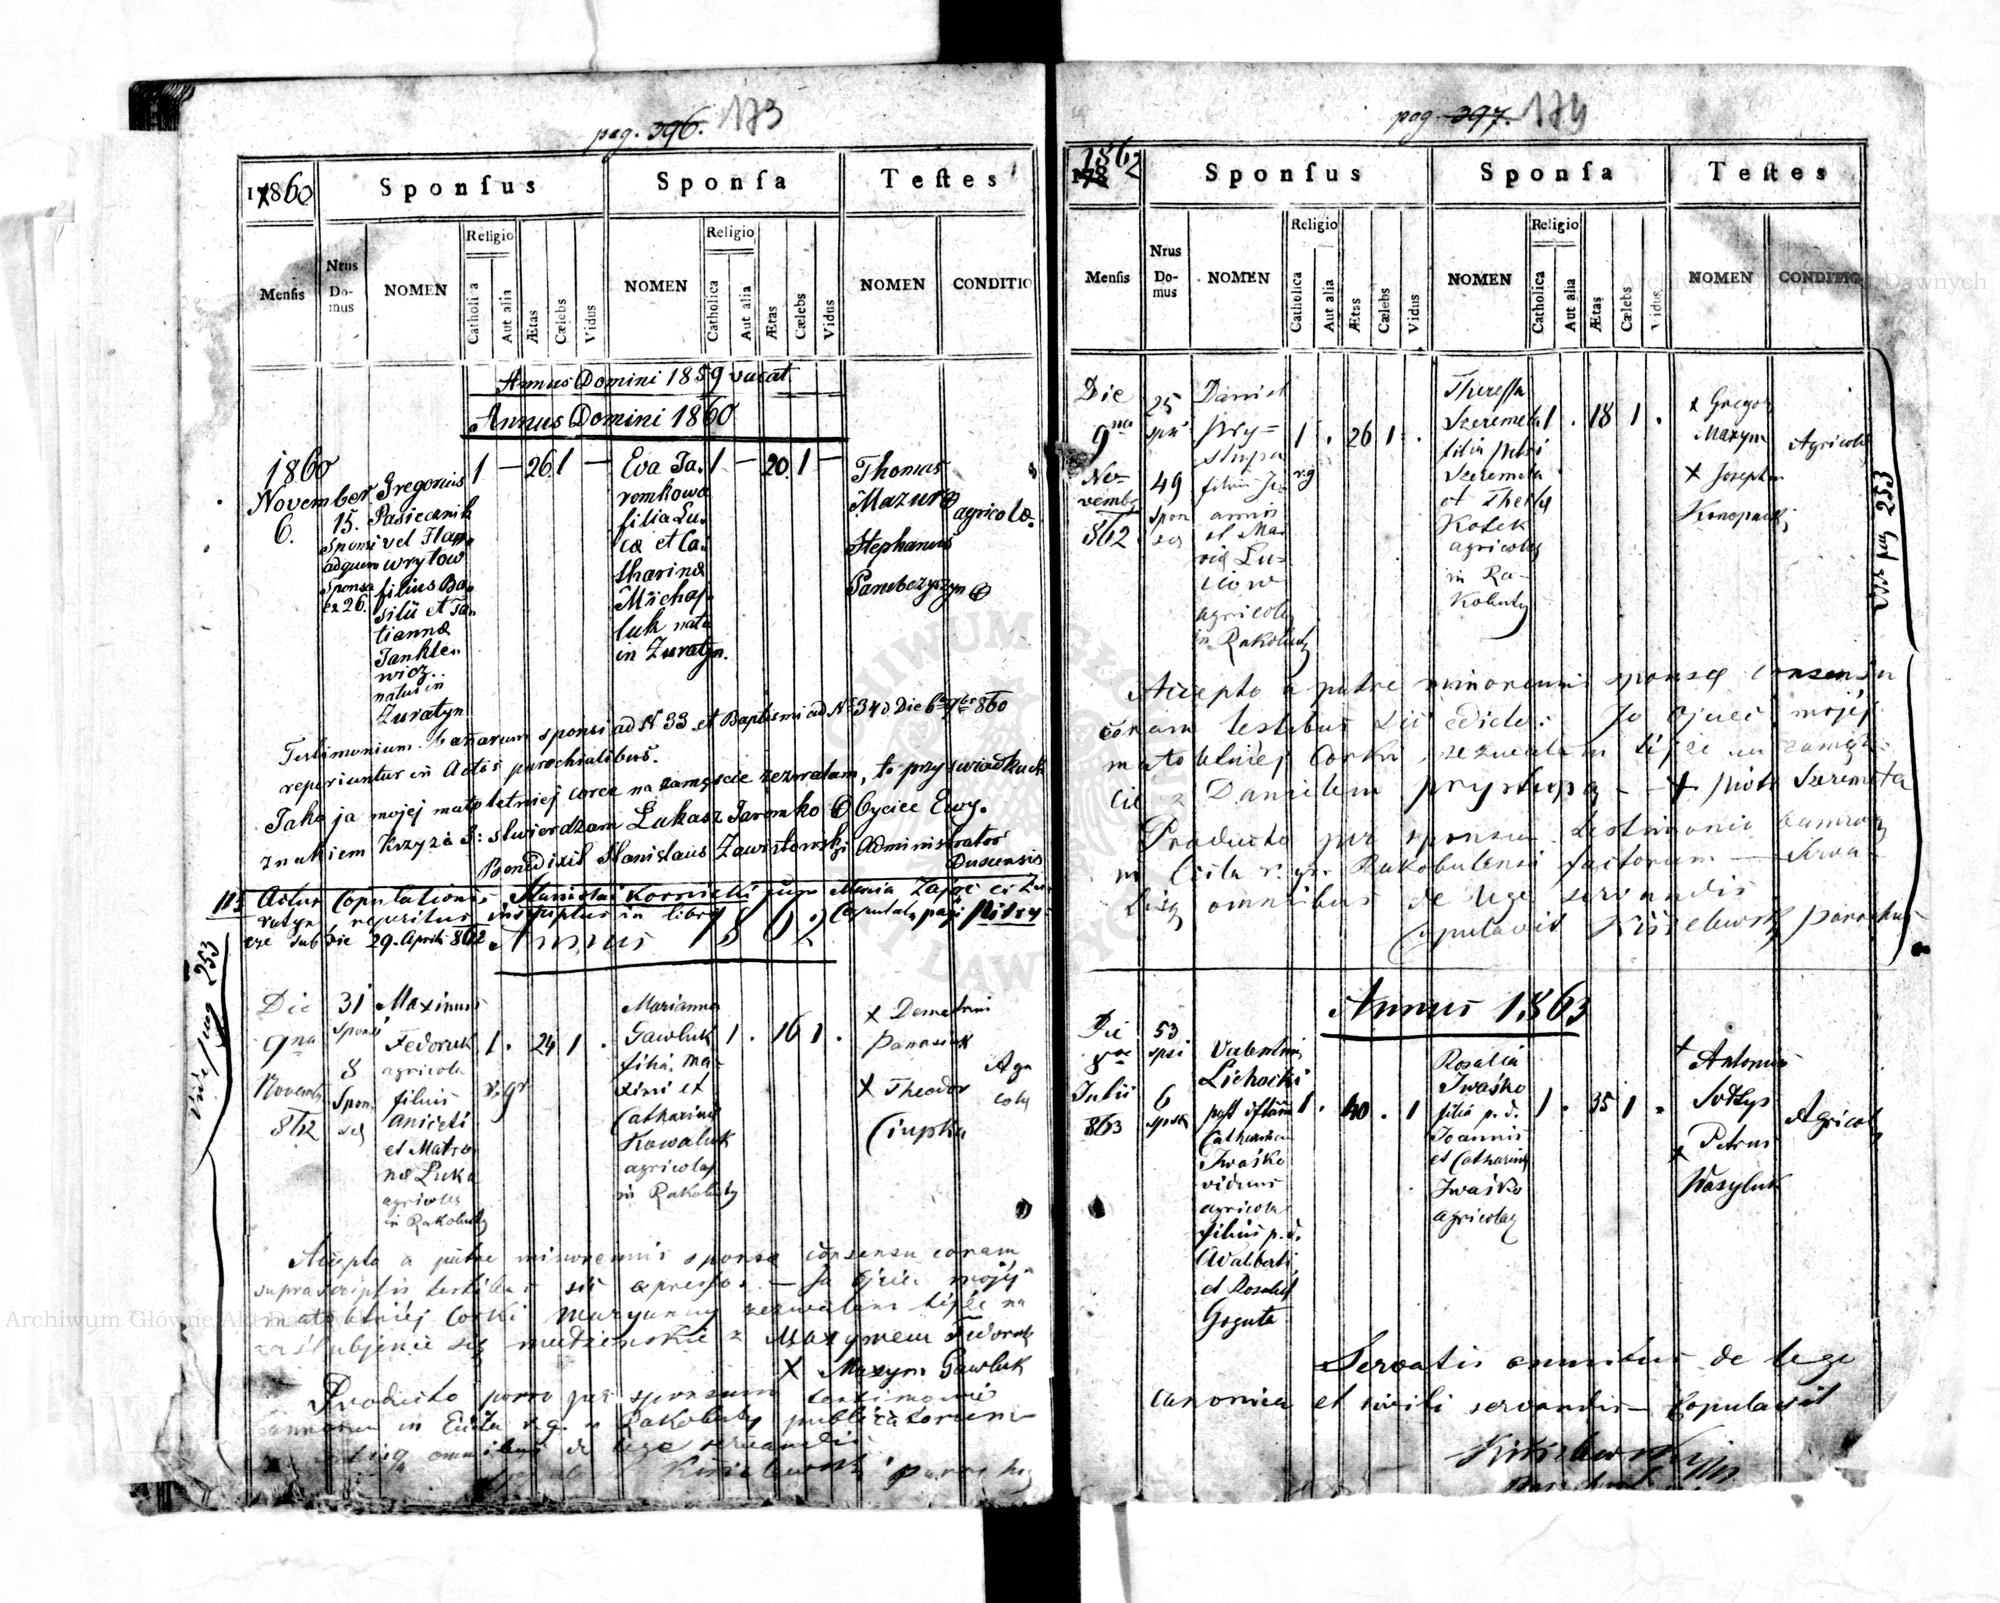 pag. 396. 173
1860
Sponſus
Sponſa
Teſtes
Menſis
Nrus Do-mus
NOMEN
Religio
Catholica
Aut alia
Ætas
Cælebs
Vidus
NOMEN
Religio
Catholica
Aut alia
Ætas
Cælebs
Vidus
NOMEN
CONDITIO
Annus Domini 1859 vacat
Annus Domini 1860
1860
November
6.
15.
Sponsi
ad quem
Sponsa
ex 26.
Gregorius
Pasiecznik
vel Haw
wrylow
filius Ba-
silii et Ta-
tianna
Jankie-
wicz
natus in
Zuratyn
1 — 26 1 —
Eva Ja-
romkowa
filia Lu-
cæ et Ca-
tharinæ
Michaj-
luk nata
in Zuratyn.
1 — 20 1 —
Thomas
Mazur
Stephanus
agricolæ.
Testimonium bannorum sponsi ad N 33 et Baptismi ad N 340. Die 6 9bris 860
reperiuntur in Actis parochialibus.
Jako ja mojej małoletniej corce na zamęscie zezwalam, to przy swiadkach
znakiem Krzyża S: stwierdzam Lukasz Jaromko Oycice Ewy.
Benedixit Stanislaus Zawistowski Administrator
Buscensis
Actus Copulationis Stanislai Kornicki cum Maria Zając ex Zu-
ratyn reperitur inscriptus in libro Copulat. pagi
sub die 29. Aprilis 862
Annus 1862
Vide pag 253
Die
9na
Novemb
862
31
Sponsi
8
Spon
sæ
Maximus
Fedoruk
agricola
filius
Aniceti
et Matro
næ Luka
agricolæ
in Rakobuty
1 . 24 1 .
r.gr
Marianna
Gawluk
filia Ma-
ximi et
Catharinæ
Kowaluk
agricolæ
in Rakobuty
1 . 16 1 .
x Demetrius
Panasiuk
x Theodor
Ciupka
Agri
colæ
Accepto a patre minorennis sponsæ consensu coram
suprascriptis testibus sic expresso. — Ja Ojciec mojéj
małoletniéj Corki Maryanny zezwalam téjże na
zaślubienie się małżeńskie z Maxymem Fedoruk
X Maxym Gawluk
Producto porro per sponsum testimonio
bannorum in Eccla r.g. in Rakobuty publicatorum
omnibus de lege servandis
Kisielewski parochus
pag 397. 174
1862
Sponſus
Sponſa
Teſtes
Menſis
Nrus Do-mus
NOMEN
Religio
Catholica
Aut alia
Ætas
Cælebs
Vidus
NOMEN
Religio
Catholica
Aut alia
Ætas
Cælebs
Vidus
NOMEN
CONDITIO
Die
9na
No-
vembr
862
25
spsi
49
spon
sæ
Daniel
Pry-
stupa
filius Jo
annis
et Ma
riæ Lu-
ciow
agricolæ
in Rakobuty
1 . 26 1 .
r.g
Theressa
Szeremeta
filia Petri
Szeremeta
et Theclæ
Kosek
agricolæ
in Ra-
kobuty
1 . 18 1 .
x Gregor
Maxym
x Josephus
Konopacki
Agricolæ
Vide pag 253
Accepto a patre minorennis sponsæ consensu
coram testibus sic edicto: Ja Ojciec mojéj
małoletniéj Corki zezwalam téjże na zamęż-
cie z Danielem Prystupą — + Piotr Szeremeta
Producto per sponsum testimonio bannorum
in Eccla r. gr. Rakobutensi factorum — Serva-
tisq omnibus de lege servandis
Copulavit Kisielewski parochus
Annus 1863
Die
8va
Julii
863
53
spsi
6
spsæ
Valentinus
Lichacki
post
Catharina
Iwaśko
viduus
agricola
filius p. d.
Adalberti
et Rosaliæ
Goguta
1 . 40 . 1
Rosalia
Iwaśko
filia p. d.
Joannis
et Catharina
Iwaśko
agricolæ
1 . 35 1 .
+ Antonius
Sołtys
x Petrus
Wasyluk
Agricolæ
Servatis omnibus de lege
canonica et civili servandis — Copulavit
Kisielewski
Archiwum Główne Akt Dawnych